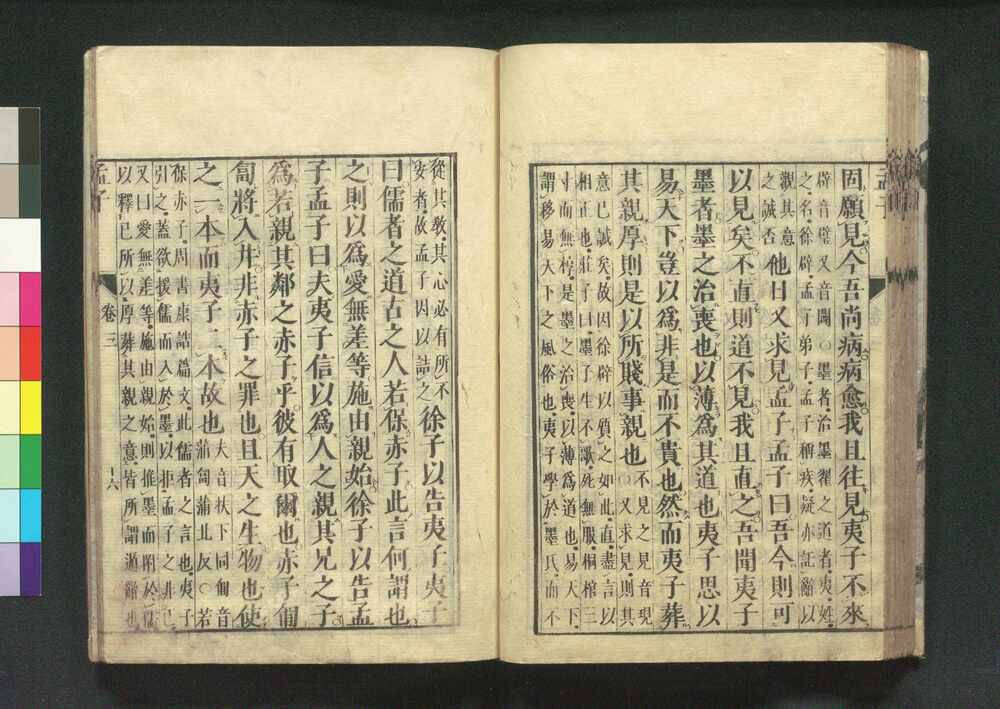 固願見今吾尚病病愈我且往見夷子不來
辟音壁又音闢○墨者治墨翟之道者夷姓
之名徐辟孟子弟子孟子稱疾疑亦託辭以
觀其意
之誠否
他日又求見孟子孟子曰吾今則可
以見矣不直則道不見我且直之吾聞夷子
墨者墨之治喪也以薄爲其道也夷子思以
易天下豈以爲非是而不貴也然而夷子葬
其親厚則是以所賤事親也
不見之見音現
○又求見則其
意已誠矣故因徐辟以質之如此直盡言以
相正也莊子曰墨子生不歌死無服桐棺三
寸而無椁是墨之治喪以薄爲道也易天下
謂移易天下之風俗也夷子學於墨氏而不
從其敎其心必有所不
安者故孟子因以詰之
徐子以告夷子夷子
曰儒者之道古之人若保赤子此言何謂也
之則以爲愛無差等施由親始徐子以告孟
子孟子曰夫夷子信以爲人之親其兄之子
爲若親其鄰之赤子乎彼有取爾也赤子匍
匐將入井非赤子之罪也且天之生物也使
之一本而夷子二本故也
夫音扶下同匍音
蒲匐蒲北反○若
保赤子周書康誥篇文此儒者之言也夷子
引之蓋欲援儒而入於墨以拒孟子之非己
又曰愛無差等施由親始則推墨而附於儒
以釋己所以厚葬其親之意皆所謂遁辭也
孟子
卷三
十六